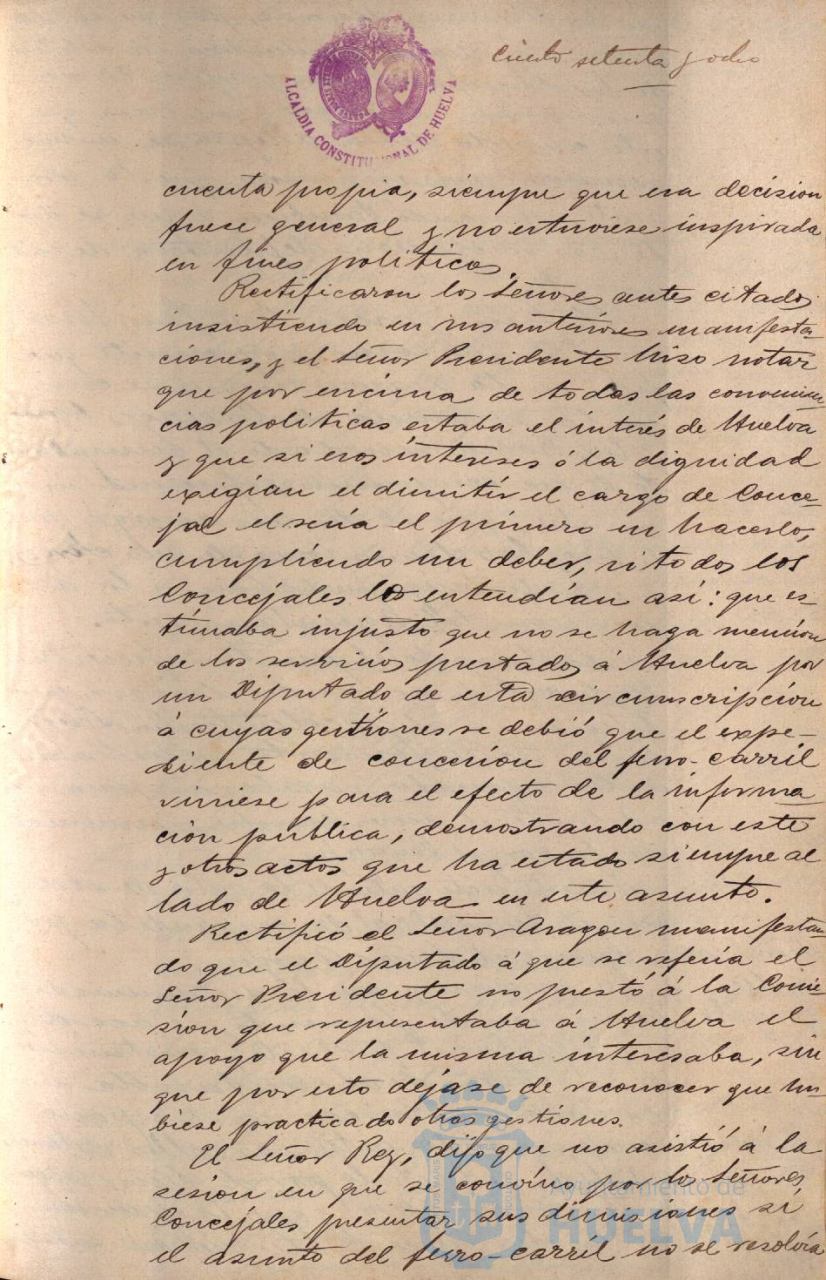 ciento setenta y ocho
ALCALDIA CONSTITUCIONAL DE HUELVA
cuenta propia, siempre que esa decision
fuese general y no estuviese inspirada
en fines politicos.
Rectificaron los Señores antes citados
insistiendo en sus anteriores manifesta-
ciones, y el Señor Presidente hizo notar
que por encima de todas las convenien-
cias politicas estaba el interés de Huelva
y que si esos intereses ó la dignidad
exigían el dimitir el cargo de Conce-
jal el sería el primero en hacerlo,
cumpliendo un deber, si todos los
Concejales lo entendían así: que es-
timaba injusto que no se haga mencion
de los servicios prestados á Huelva por
un Diputado de esta circunscripcion
á cuyas gestiones se debió que el expe-
diente de concesion del ferro-carril
viniese para el efecto de la informa-
ción pública, demostrando con este
y otros actos que ha estado siempre al
lado de Huelva en este asunto.
Rectificó el Señor Aragon manifestan-
do que el Diputado á que se refería el
Señor Presidente no prestó á la Comi-
sion que representaba á Huelva el
apoyo que la misma interesaba, sin
que por esto dejase de reconocer que hu-
biese practicado otras gestiones.
El Señor Rey, dijo que no asistió á la
sesion en que se convino por los Señores
Concejales presentar sus dimisiones si
el asunto del ferro-carril no se resolvía
Ayuntamiento de
HUELVA